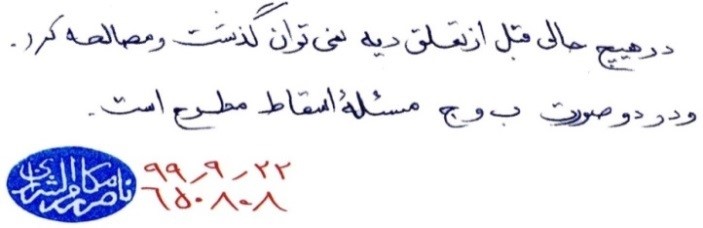 در هیچ حالی قبل از تعلق دیه نمی توان گذشت و مصالحه کرد.
و در دو صورت ب و ج مسئلهٔ اسقاط مطرح است.
۹۹٫۹٫۲۲
۶۵۰۸۰۸
ناصر مکارم الشیرازی